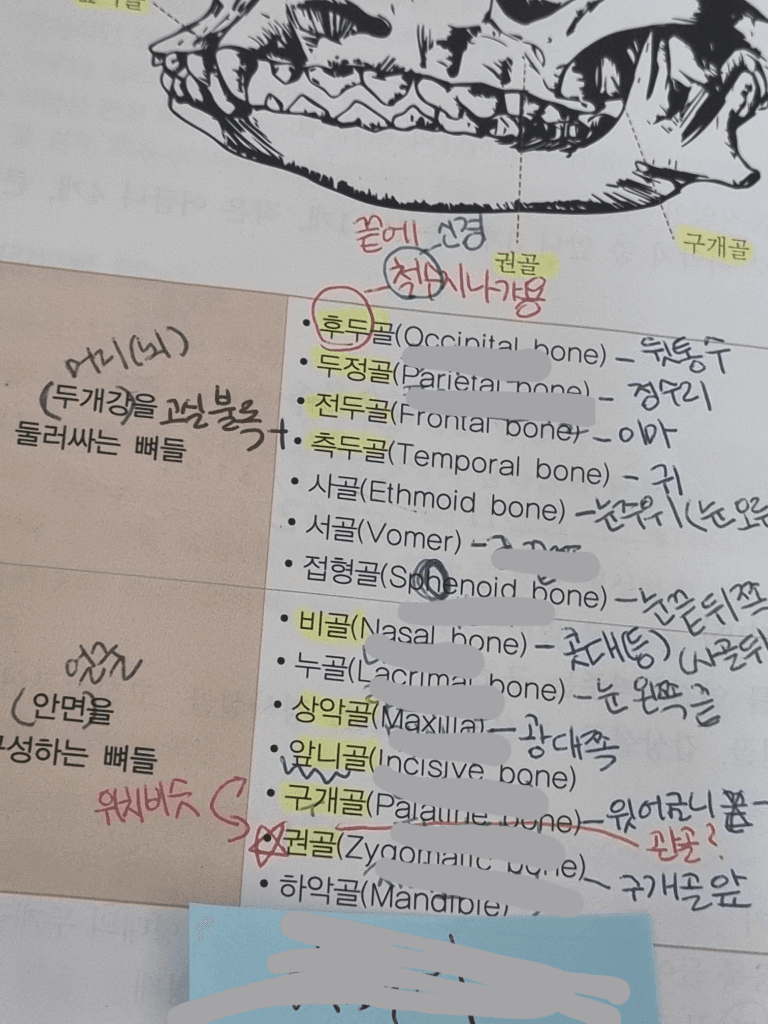 끝에 신경
권골
구개골
척수 지나가용
후두골(Occipital bone) – 뒷통수
두정골(Parietal bone) – 정수리
전두골(Frontal bone) – 이마
측두골(Temporal bone) – 귀
사골(Ethmoid bone) – 눈주위(눈
서골(Vomer) –
접형골(Sphenoid bone) – 눈끝뒤쪽
머리(뇌)
(두개강)을
둘러싸는 뼈들
비골(Nasal bone) – 콧대(등) (사골뒤
누골(Lacrimal bone) – 눈 왼쪽 끝
상악골(Maxilla) – 광대쪽
앞니골(Incisive bone)
구개골(Palatine bone) – 윗어금니
관골?
권골(Zygomatic bone) 구개골 앞
하악골(Mandible)
얼굴
(안면)을
구성하는 뼈들
위치비슷